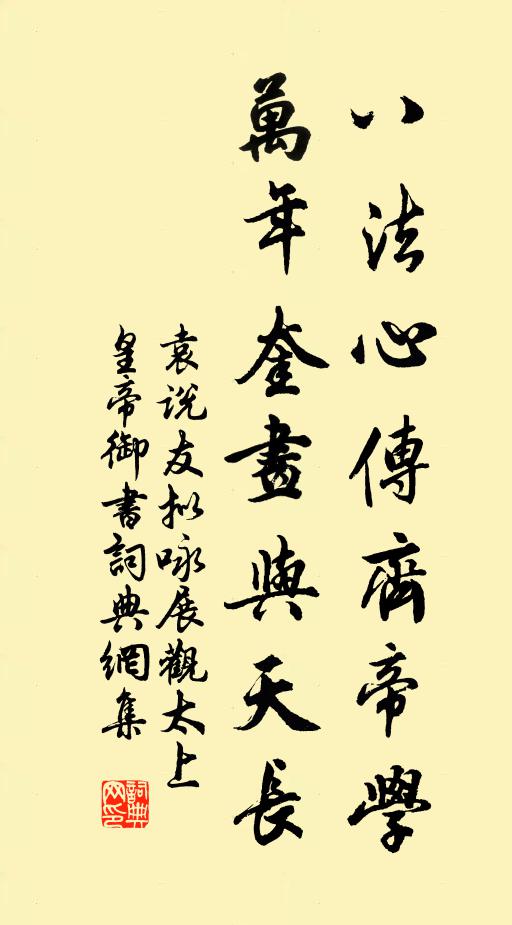 八法心傳齊帝學
萬年奎畫與天長
袁說友拟咏展觀太上
皇帝御書詞典網集
詞典网印